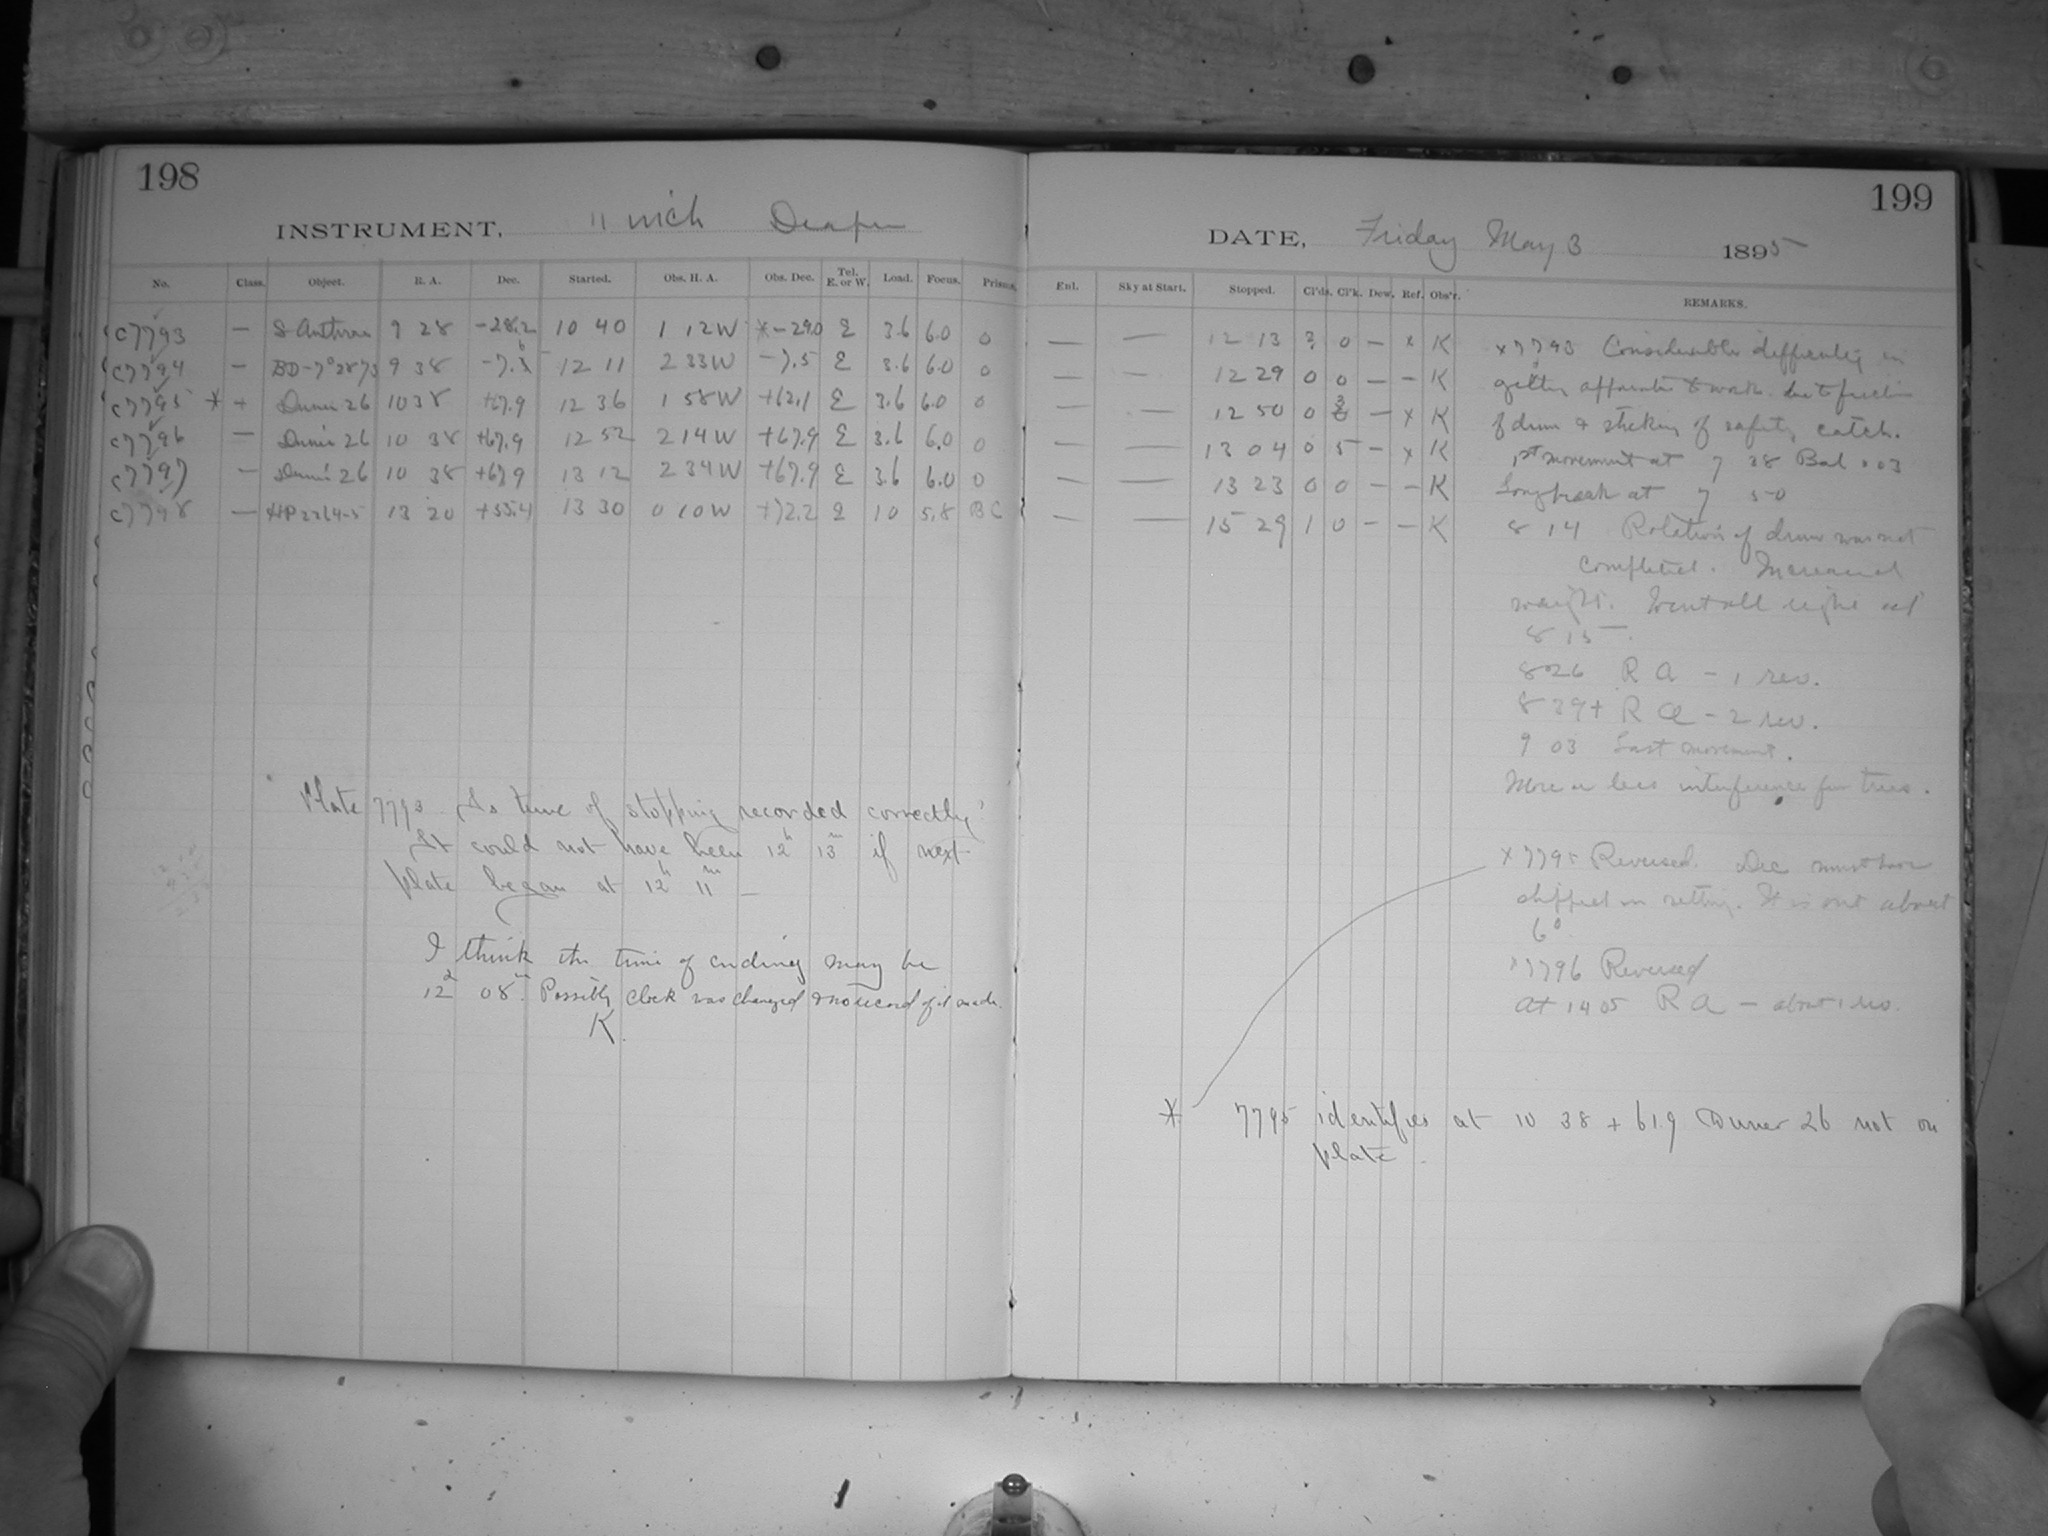 198
INSTRUMENT, 11 inch Draper
No. Class. Object. R. A. Dec. Started. Obs. H. A. Obs. Dec. Tel. E. or W. Load. Focus. Prisms.
C7793 — S Antliae 9 28 -28.2 10 40 1 12W *-29.0 E 3.6 6.0 0
C7794 — BD-7°2873 9 38 12 11 2 33W -7.5 E 3.6 6.0 0
C7795 * + Dunér 26 10 38 +67.9 12 36 1 58W +62.1 E 3.6 6.0 0
C7796 — Dunér 26 10 38 +67.9 12 52 2 14W +67.9 E 3.6 6.0 0
C7797 — Dunér 26 10 38 +67.9 13 12 2 34W +67.9 E 3.6 6.0 0
C7798 — 13 20 +55.4 13 30 0 10W +72.2 E 10 5.8 BC
Plate 7793 Is time of stopping recorded correctly?
It could not have been 12h 13m if next
plate began at 12h 11m —
I think the time of ending may be
12 08m. Possibly clock was changed & no record of it made.
K
199
DATE, Friday May 3 1895
Enl. Sky at Start. Stopped. Cl'ds. Cl'k. Dew. Ref. Obs'r. REMARKS.
— — 12 13 3 0 — x K
— — 12 29 0 0 — — K
— — 12 50 0 3 — x K
— — 13 04 0 5 — x K
— — 13 23 0 0 — — K
— — 15 29 1 0 — — K
x7793 Considerable difficulty in
getting apparatus to work due to friction
of drum & sticking of safety catch.
1st movement at 7 38 Bal 03
Long break at 7 50
8 14 Rotation of drum was not
completed. Increased
weight. Went all right at
8 15.
8 26 R A - 1 rev.
8 39+ R A - 2 rev.
9 03 Last movement.
More or less interference from trees.
x7795 Reversed. Dec must have
slipped in setting. It is out about
6°
x7796 Reversed
At 14 05 R A — about 1 rev.
* 7795 identifies at 10 38 + 61.9 Duner 26 not on
plate.